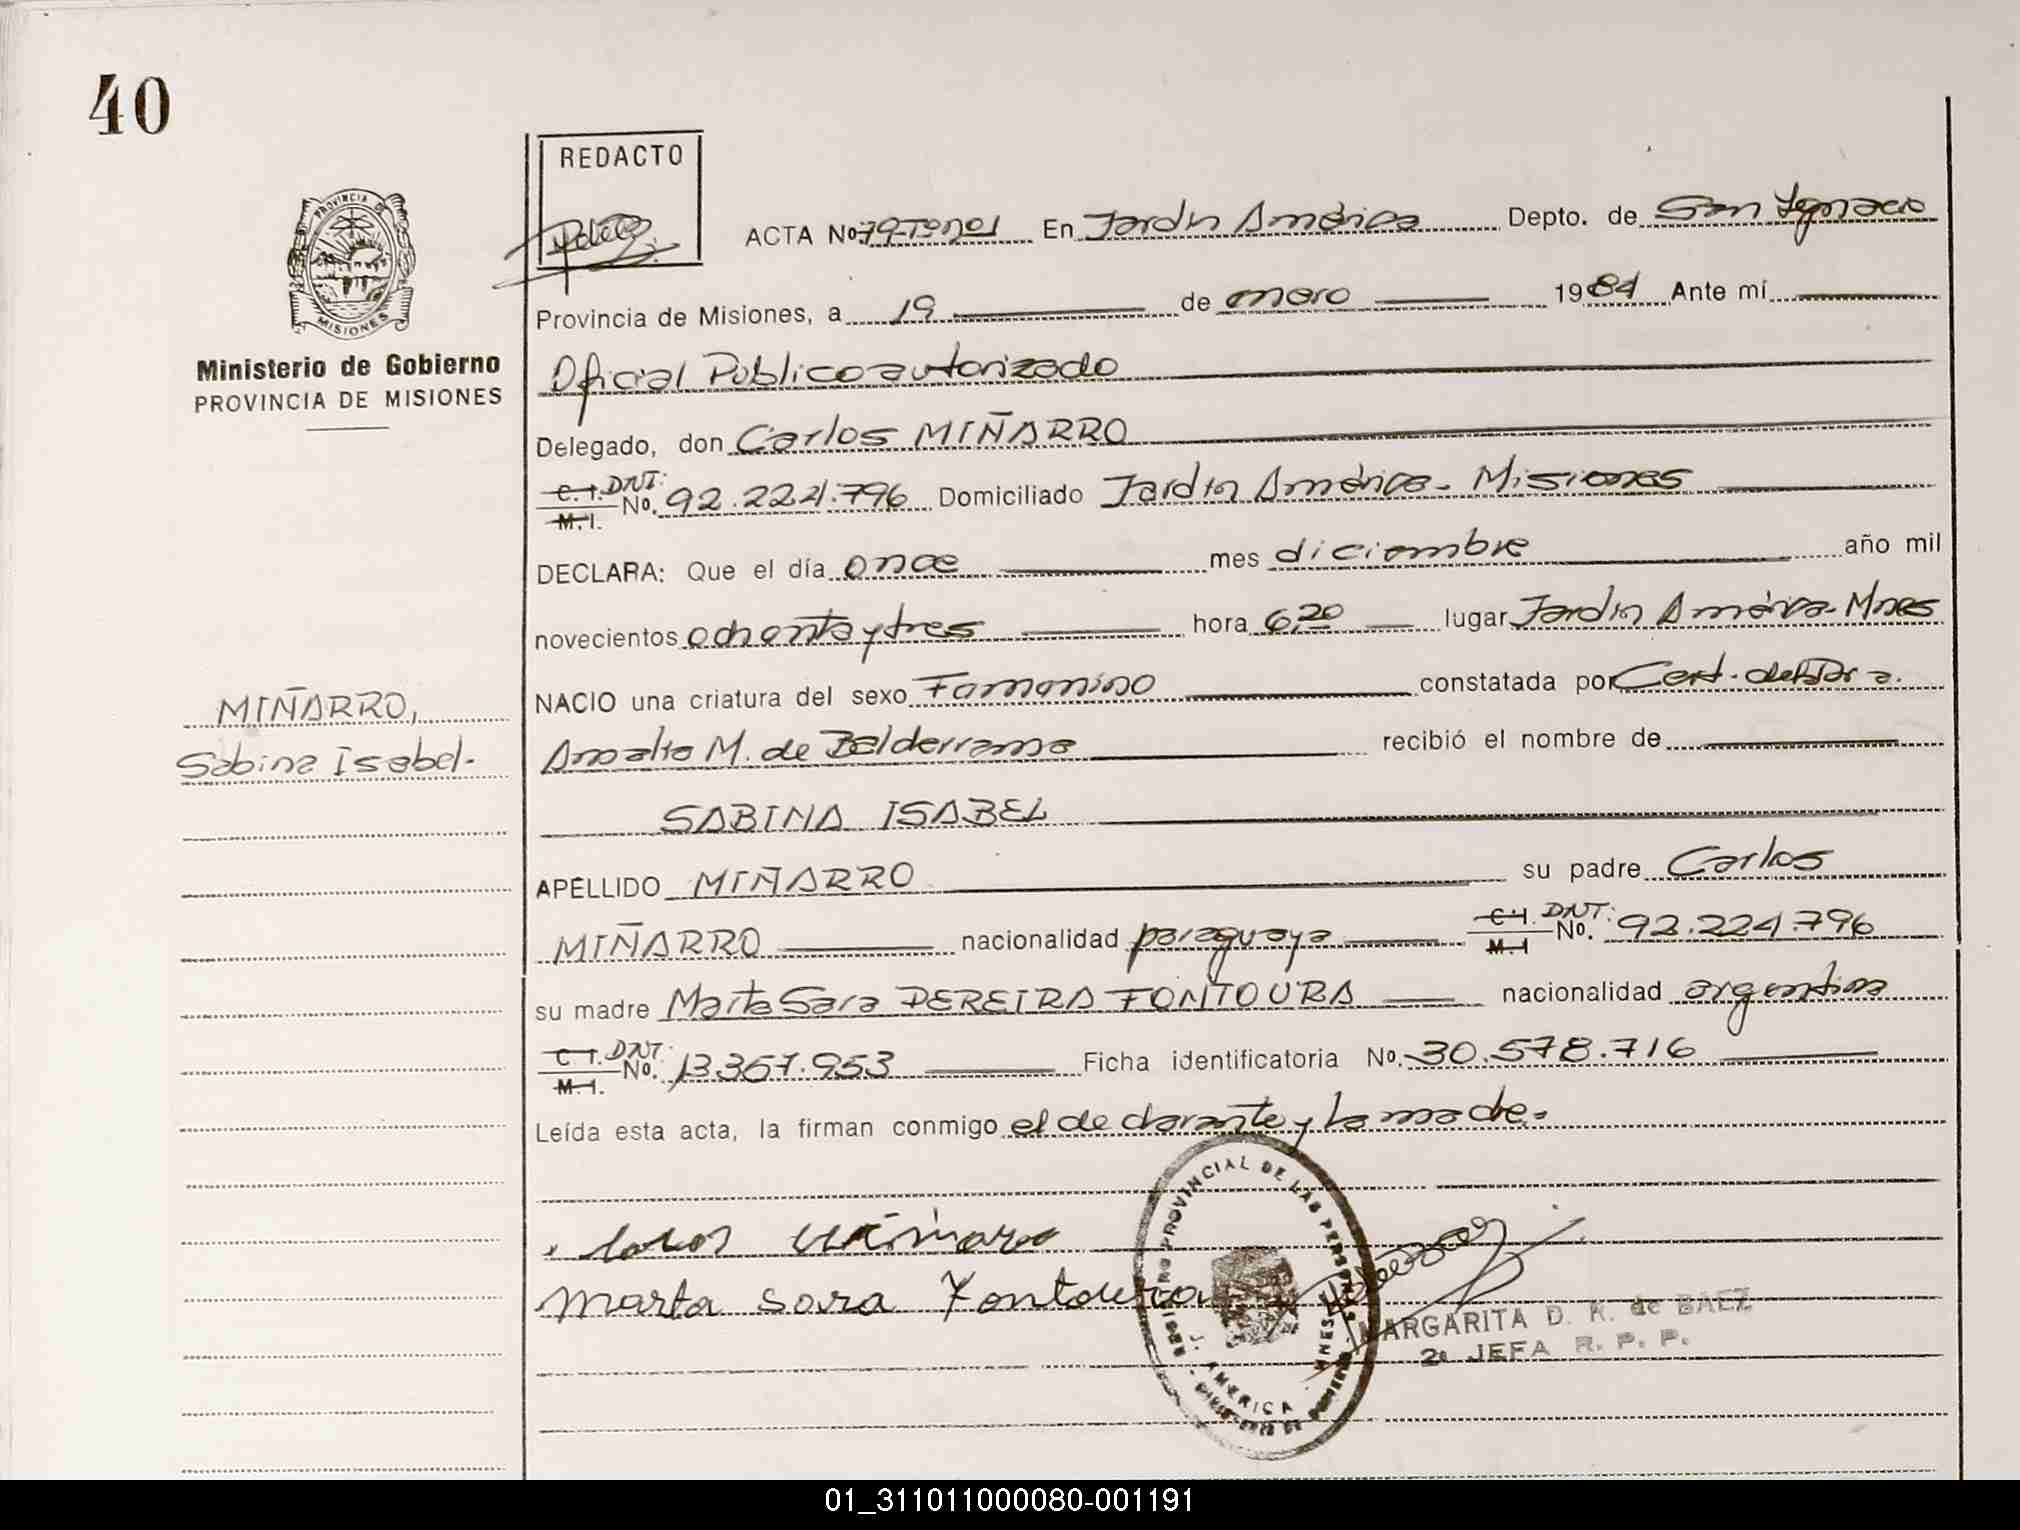 40
REDACTO
PROVINCIA DE
MISIONES
Ministerio de Gobierno
PROVINCIA DE MISIONES
ACTA No 79-Tomo I En Jardín América Depto. de San Ignacio
Provincia de Misiones, a 19 de enero 1984 Ante mí
Oficial Público autorizado
Delegado, don Carlos MIÑARRO
C.I. M.I. DNI: No. 92.224.796 Domiciliado Jardín América - Misiones
DECLARA: Que el día once mes diciembre año mil
novecientos ochenta y tres hora 6,20 lugar Jardín América - Mnes
NACIO una criatura del sexo Femenino constatada por Cert. de Part a.
Amalia M. de Balderrama recibió el nombre de
SABINA ISABEL
MIÑARRO,
Sabina Isabel.
APELLIDO MIÑARRO su padre Carlos
MIÑARRO nacionalidad paraguaya C.I. M.I DNI: No. 92.224.796
su madre Marta Sara PEREIRA FONTOURA nacionalidad argentina
C.I. M.I. DNI: No. 13.357.953 Ficha identificatoria No. 30.578.716
Leída esta acta, la firman conmigo el declarante y la madre.
Marta Sara
REGISTRO PROVINCIAL DE LAS PERSONAS
J. AMERICA MNES
MINISTERIO DE GOBIERNO
MARGARITA D. R. de BAEZ
2a JEFA R. P. P.
01_311011000080-001191